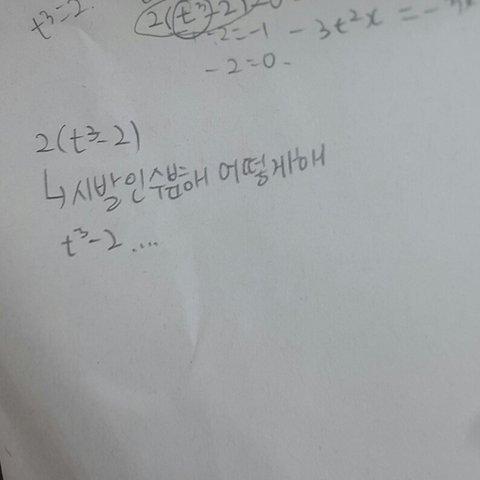 t³=2.
2(t³-2)
-2=-1 - 3t²x = -
-2=0.
2(t³-2)
↳시발 인수분해 어떻게 해
t³-2 ....